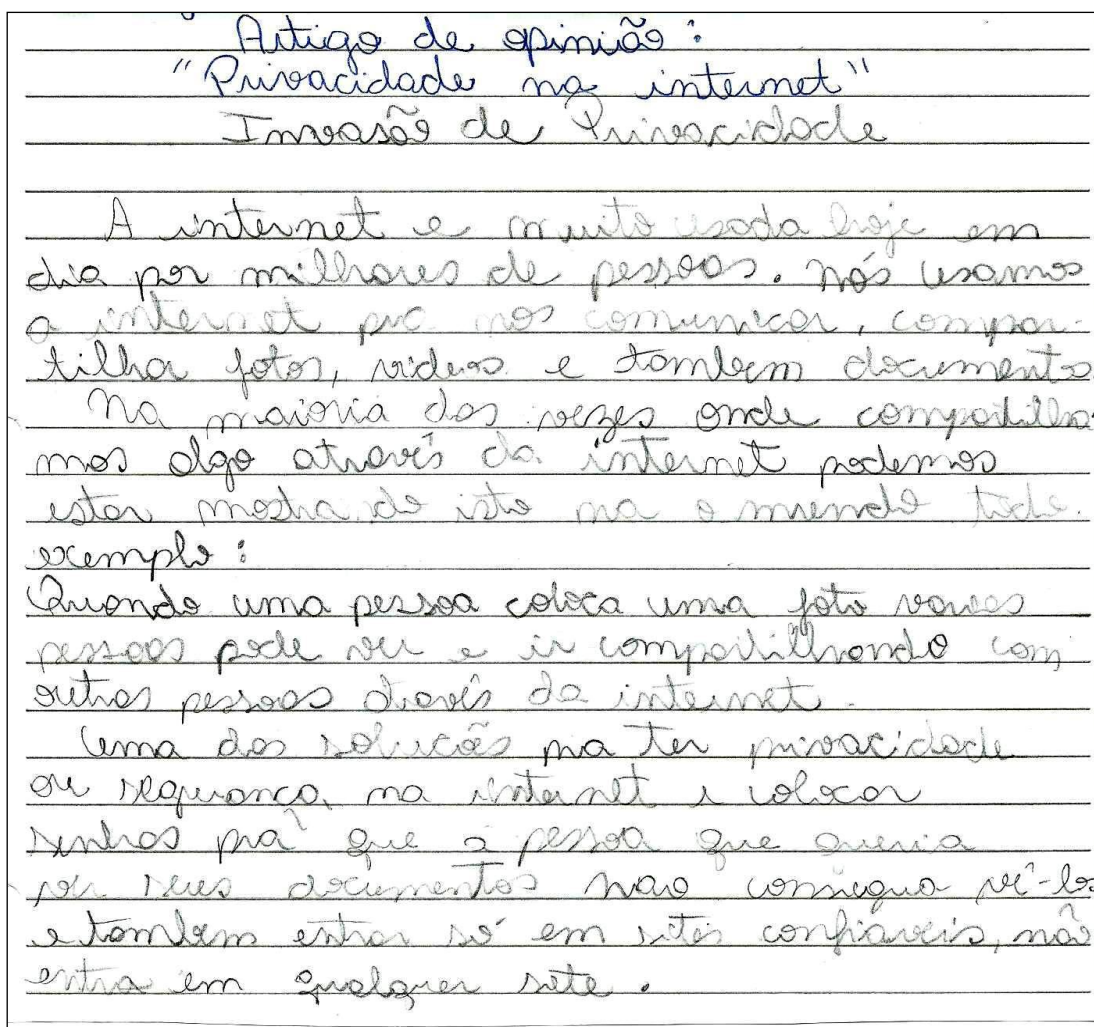 Artigo de opinião:
"Privacidade na internet"
Invasão de Privacidade
A internet e muito usada hoje em
dia por milhares de pessoas. nós usamos
a internet pra nos comunicar, compar-
tilha fotos, videos e tambem documentos
Na maioria das vezes onde compartilha-
mos algo através da internet podemos
estar mostrando isto pra o mundo todo.
exemplo:
Quando uma pessoa coloca uma foto varias
pessoas pode ver e ir compartilhando com
outras pessoas através da internet.
Uma das soluções pra ter privacidade
ou segurança na internet e colocar
senhas pra que a pessoa que queria
ver seus documentos não consegua vê-los
e tambem entrar só em sites confiaveis, não
entra em qualquer site.